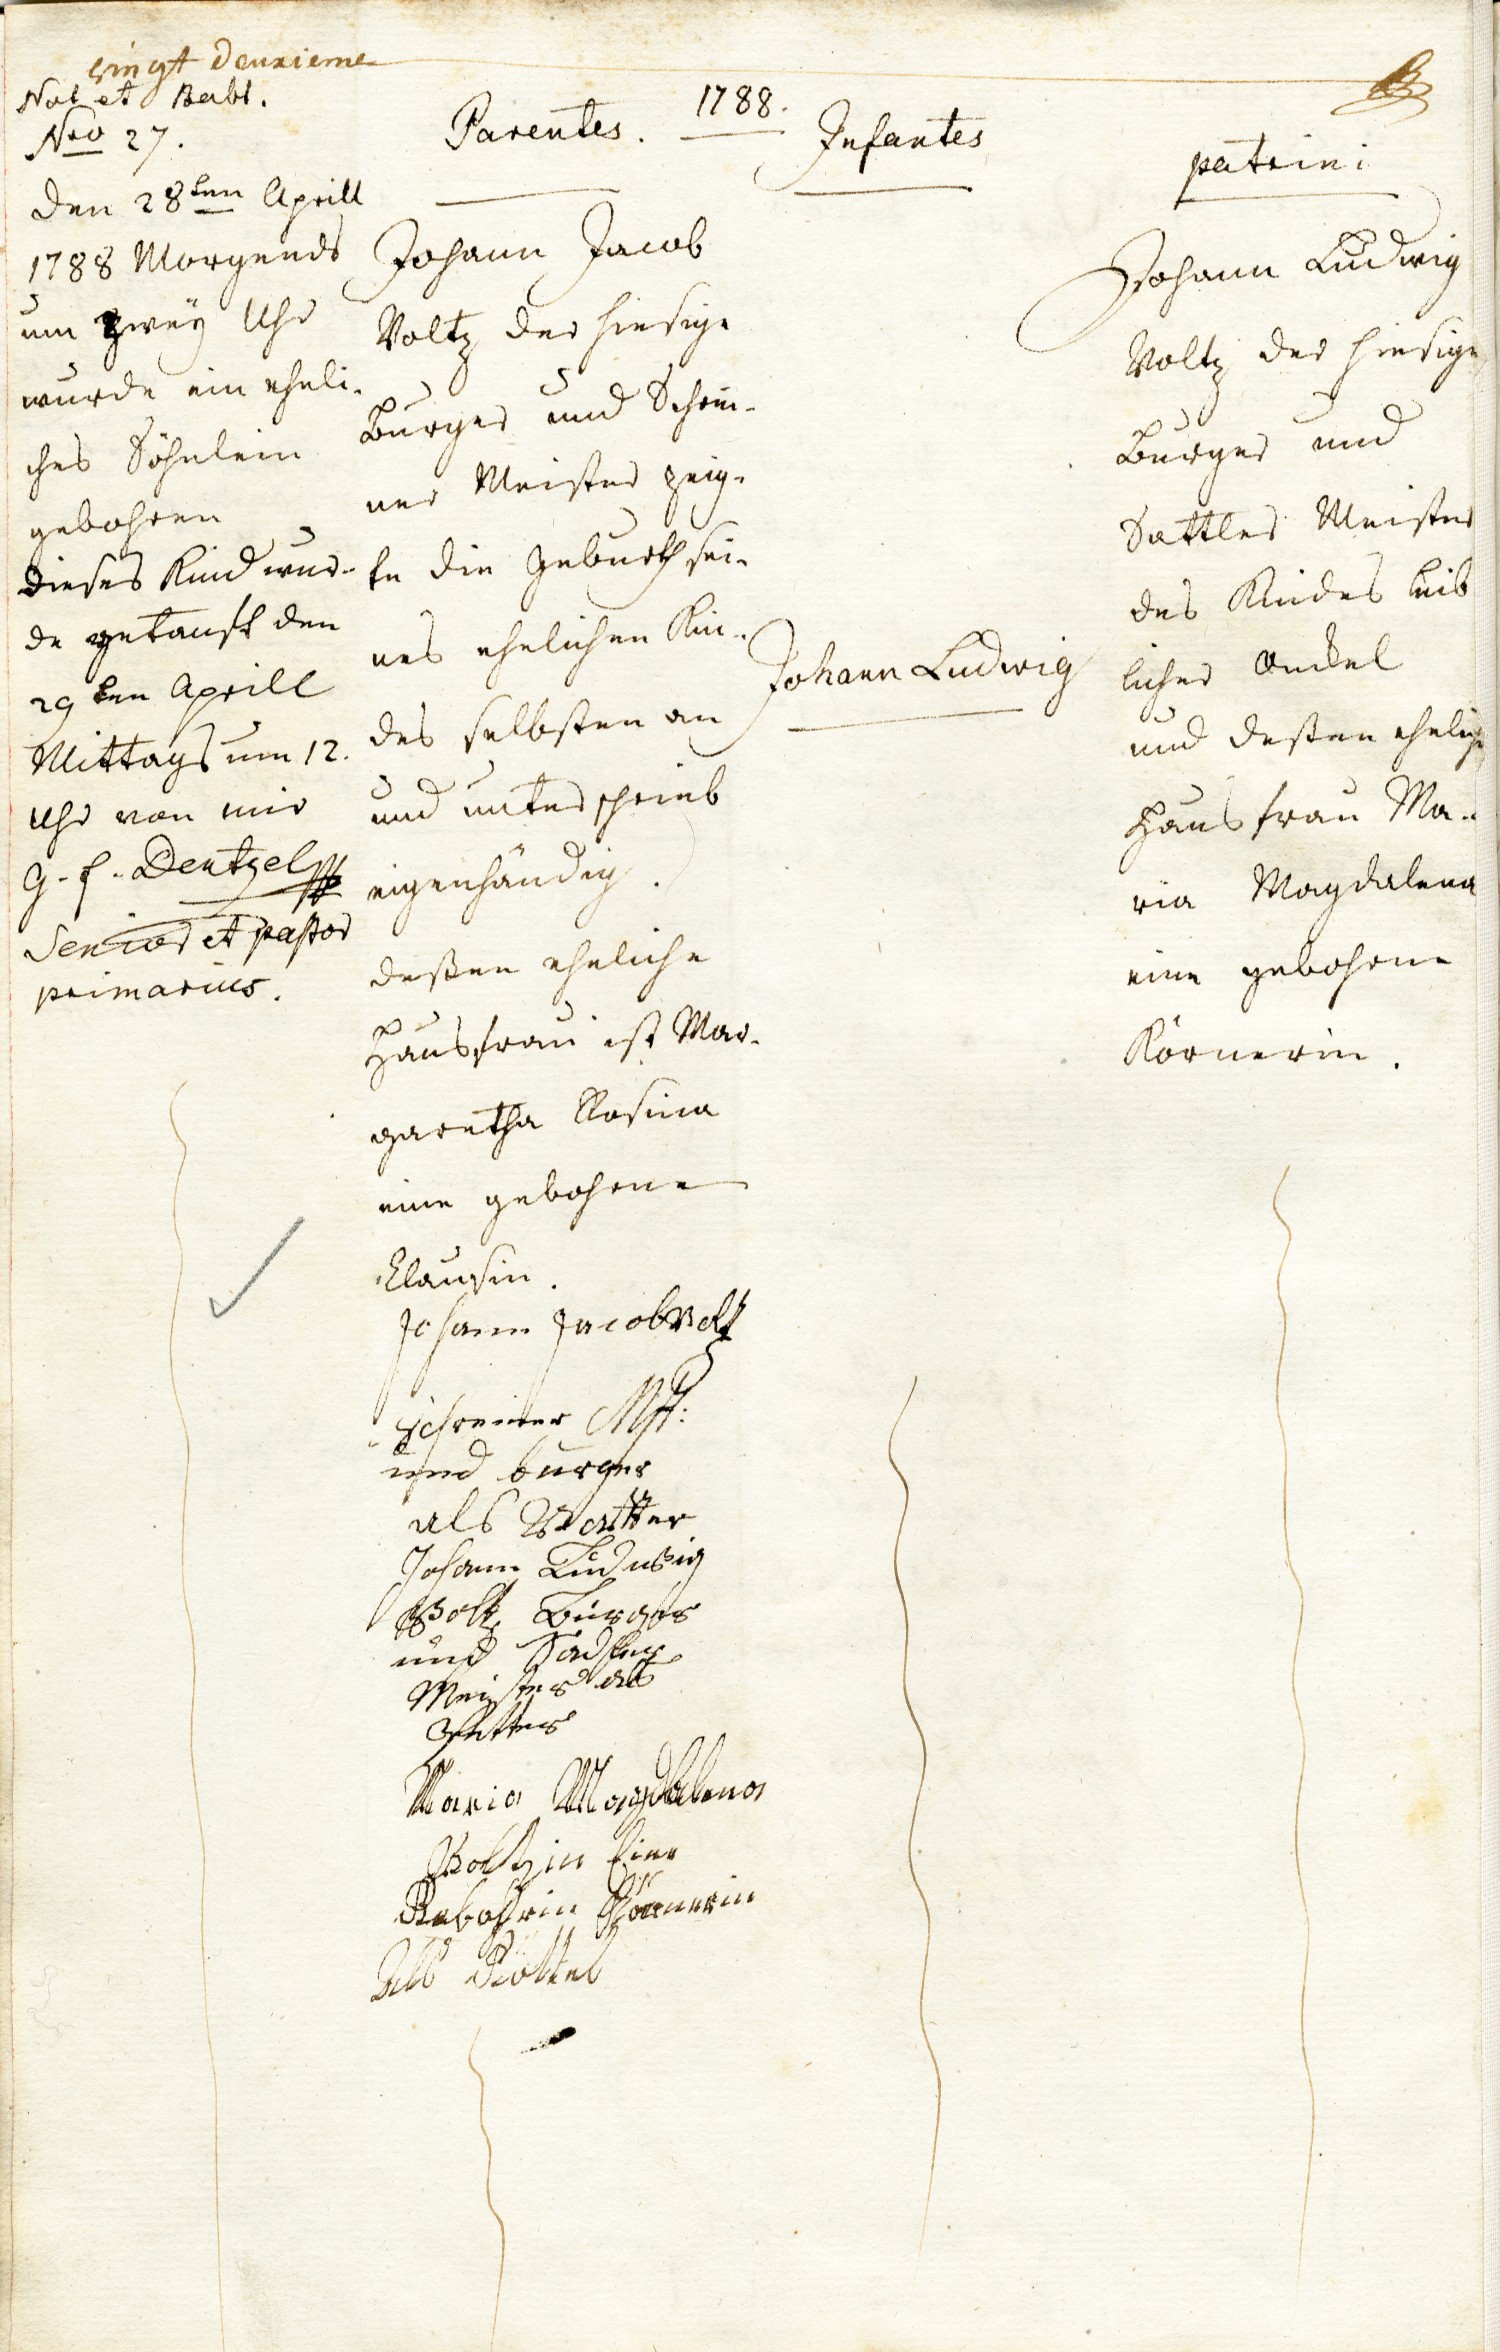 vingt deuxieme
Nat et Babt.
Nro 27.
1788.
Parentes.
Infantes
patrini
den 28ten Aprill
1788 Morgends
um zweÿ Uhr
wurde ein eheli-
ches Söhnlein
gebohren
dieses Kind wur-
de getauft den
29ten Aprill
Mittags um 12.
Uhr von mir
G. f. Dentzel
Senior et pastor
primarius.
Johann Jacob
Voltz der hiesige
Burger und Schrei-
ner Meister zeig-
te die Geburth sei-
nes ehelichen Kin-
des selbsten an
und unterschrieb
eigenhändig.
deßen eheliche
Hausfrau ist Mar-
garetha Rosina
eine gebohrene
Clausin.
Johann Jacob Voltz
schreiner Mstr:
und burger
als Vatter
Johann Ludwig
Voltz Burger
und Sadler
Meister als
Petter
Maria Magdalena
Voltzin Eine
Gebohrin Körnerin
Als Göttel
Johann Ludwig
Johann Ludwig
Voltz der hiesige
Burger und
Sattler Meister
des Kindes leib
licher Onckel
und deßen eheliche
Hausfrau Ma-
ria Magdalena
eine gebohrne
Körnerin.